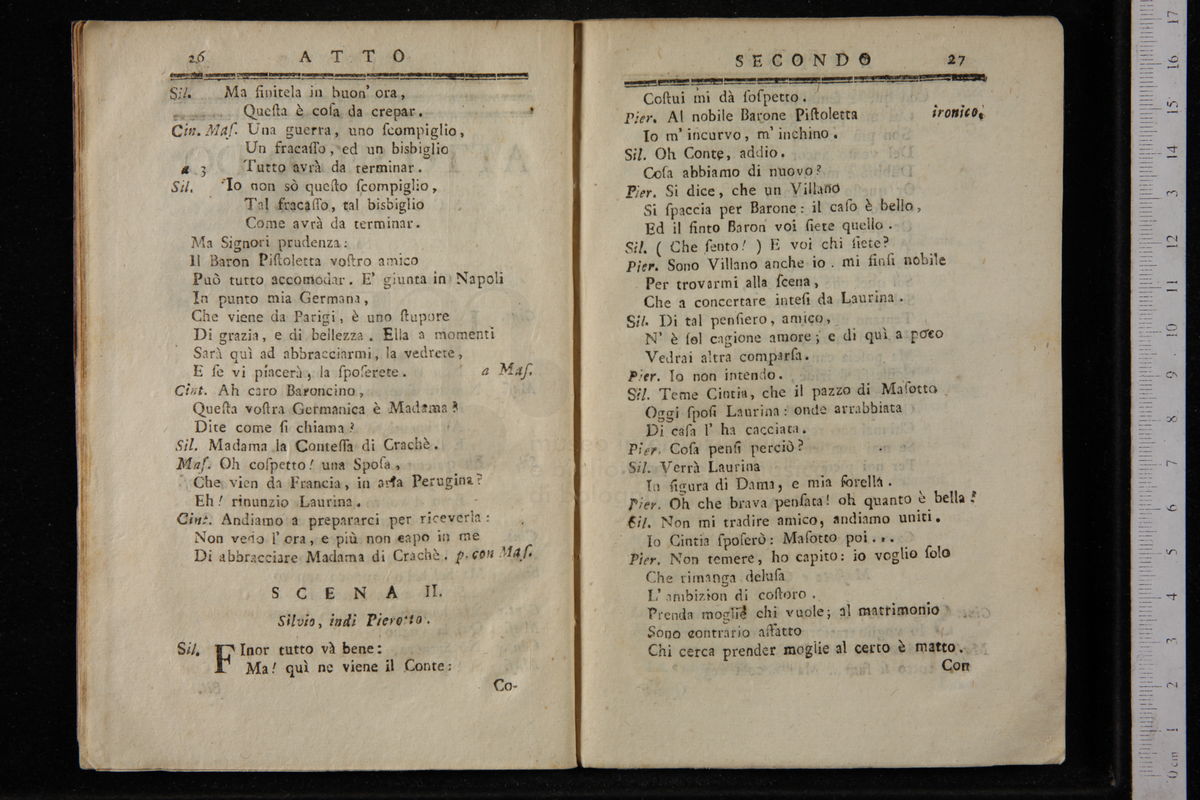 26 ATTO
Sil. Ma finitela in buon' ora,
Queſta è coſa da crepar.
Cin. Maſ. Una guerra, uno ſcompiglio,
Un fracaſſo, ed un bisbiglio
a 3 Tutto avrà da terminar.
Sil. Io non sò queſto ſcompiglio,
Tal fracaſſo, tal bisbiglio
Come avrà da terminar.
Ma Signori prudenza:
Il Baron Piſtoletta voſtro amico
Può tutto accomodar. E' giunta in Napoli
In punto mia Germana,
Che viene da Parigi, è uno ſtupore
Di grazia, e di bellezza. Ella a momenti
Sarà quì ad abbracciarmi, la vedrete,
E ſe vi piacerà, la ſpoſerete. a Maſ.
Cint. Ah caro Baroncino,
Queſta voſtra Germanica è Madama?
Dite come ſi chiama?
Sil. Madama la Conteſſa di Crachè.
Maſ. Oh coſpetto! una Spoſa,
Che vien da Francia, in Perugina?
Eh! rinunzio Laurina.
Cint. Andiamo a prepararci per riceverla:
Non vedo l' ora, e più non capo in me
Di abbracciare Madama di Crachè. p. con Maſ.
SCENA II.
Silvio, indi Pierotto.
Sil. FInor tutto và bene:
Ma! quì ne viene il Conte:
Co-
SECONDO 27
Coſtui mi dà ſoſpetto.
Pier. Al nobile Barone Piſtoletta ironico.
Io m' incurvo, m' inchino.
Sil. Oh Conte, addio.
Coſa abbiamo di nuovo?
Pier. Si dice, che un Villano
Si ſpaccia per Barone: il caſo è bello,
Ed il finto Baron voi ſiete quello.
Sil. ( Che ſento! ) E voi chi ſiete?
Pier. Sono Villano anche io. mi finſi nobile
Per trovarmi alla ſcena,
Che a concertare inteſi da Laurina.
Sil. Di tal penſiero, amico,
N' è ſol cagione amore; e di quì a poco
Vedrai altra comparſa.
Pier. Io non intendo.
Sil. Teme Cintia, che il pazzo di Maſotto
Oggi ſpoſi Laurina: onde arrabbiata
Di caſa l' ha cacciata.
Pier. Coſa penſi perciò?
Sil. Verrà Laurina
In figura di Dama, e mia ſorella.
Pier. Oh che brava penſata! oh quanto è bella!
Sil. Non mi tradire amico, andiamo uniti.
Io Cintia ſpoſerò: Maſotto poi...
Pier. Non temere, ho capito: io voglio ſolo
Che rimanga deluſa
L' ambizion di coſtoro.
Prenda moglie chi vuole; al matrimonio
Sono contrario affatto
Chi cerca prender moglie al certo è matto.
Con